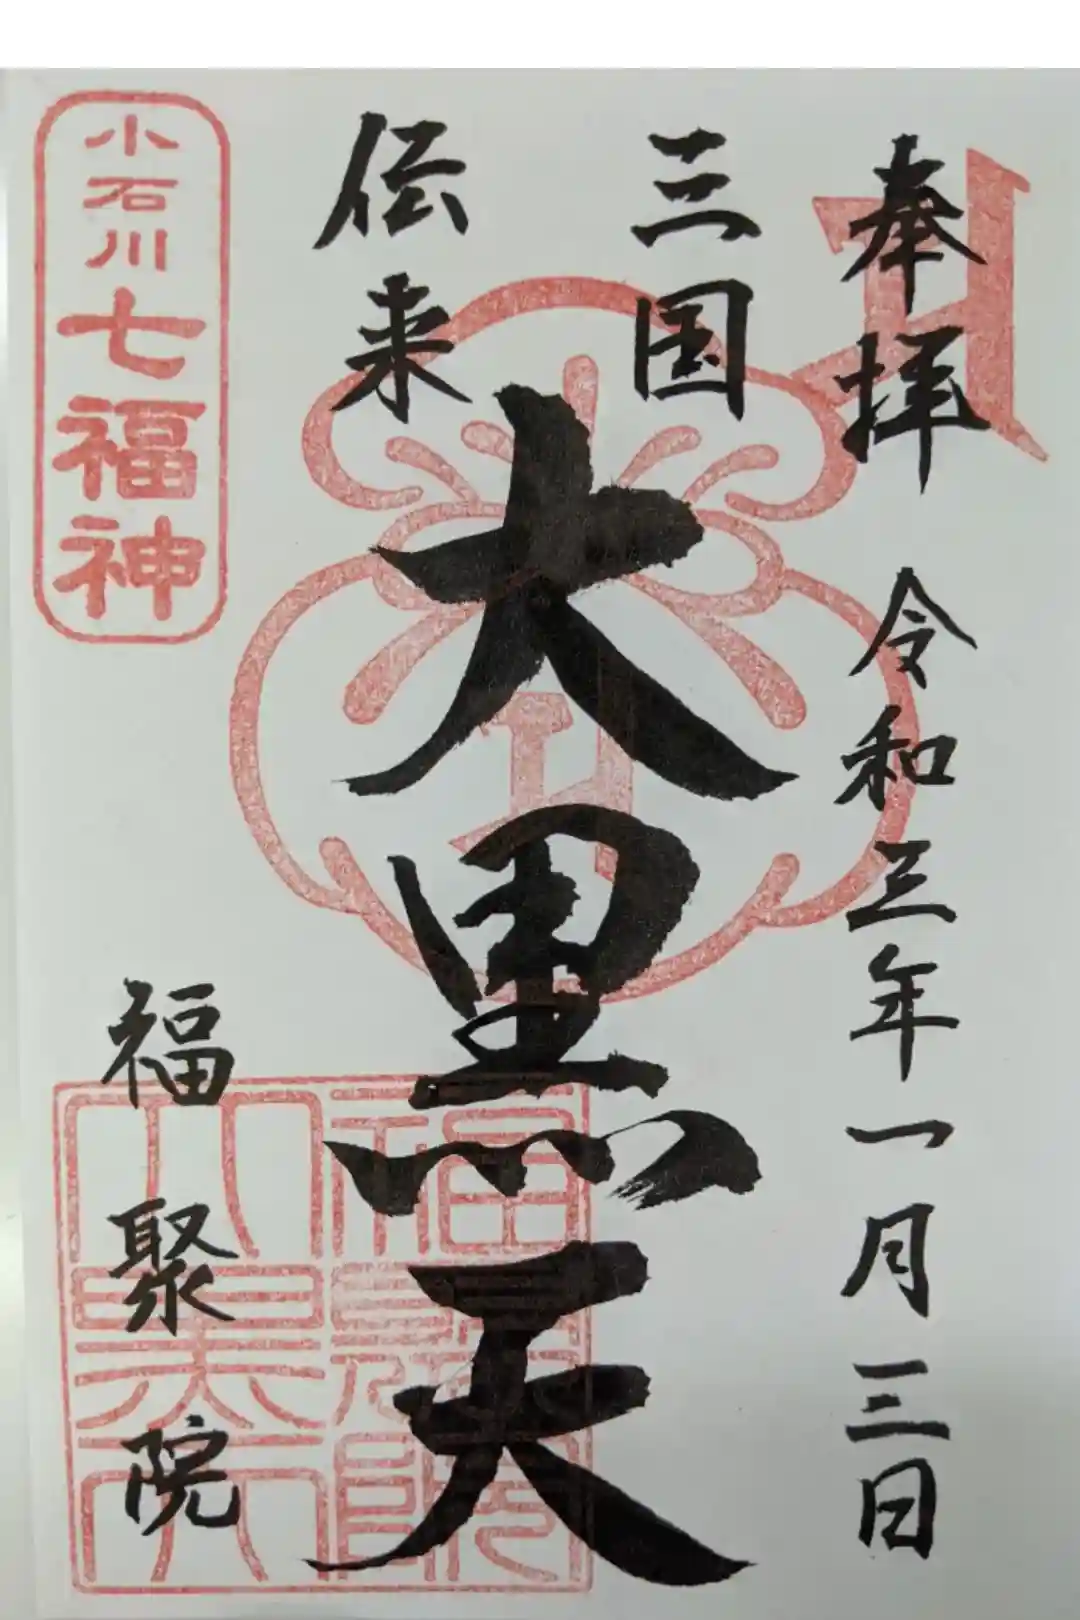 奉拝 令和三年一月三日
三国
伝来
大黒天
小石川七福神
福聚院